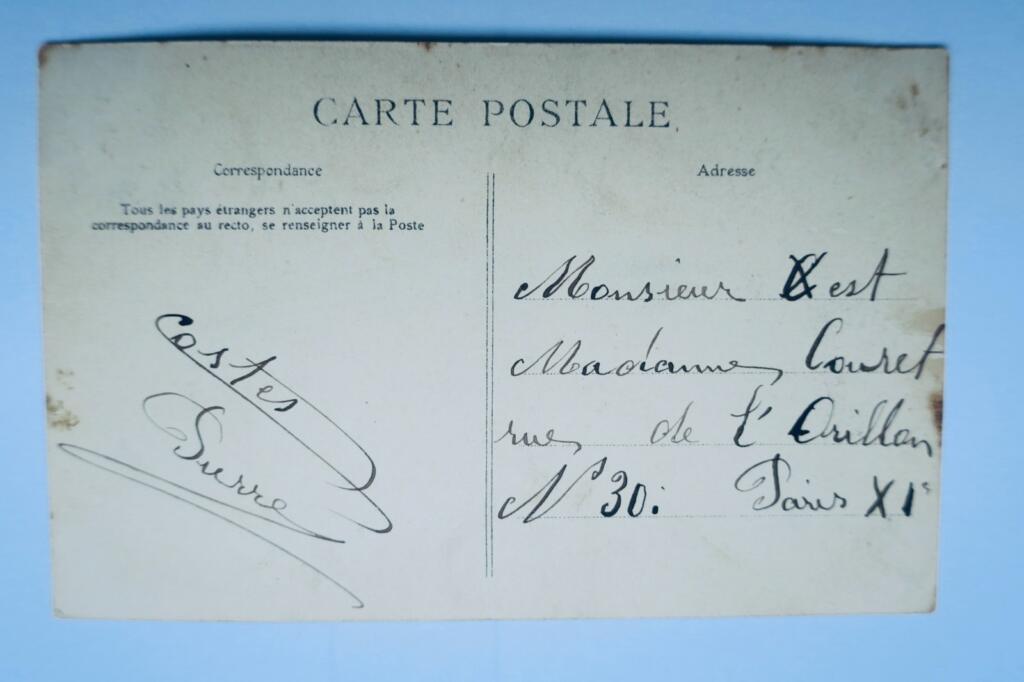 CARTE POSTALE
Correspondance
Tous les pays étrangers n'acceptent pas la
correspondance au recto, se renseigner à la Poste
Costes
Adresse
Monsieur est
Madame Couret
rue de l'Orillon
N° 30. Paris XIe